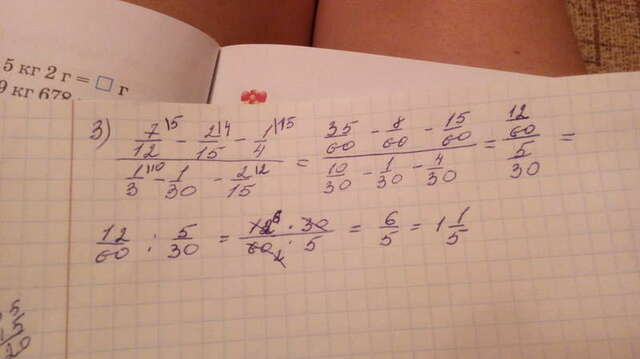 5 кг 2 г = □ г
9 кг 670
3) 7/12 |5 - 2/15 |4 - 1/4 |15
1/3 |10 - 1/30 - 2/15 |2
= 35/60 - 8/60 - 15/60
10/30 - 1/30 - 4/30
= 12/60
5/30
=
12/60 : 5/30 = 12 6 · 30/60 2 · 5 = 6/5 = 1 1/5